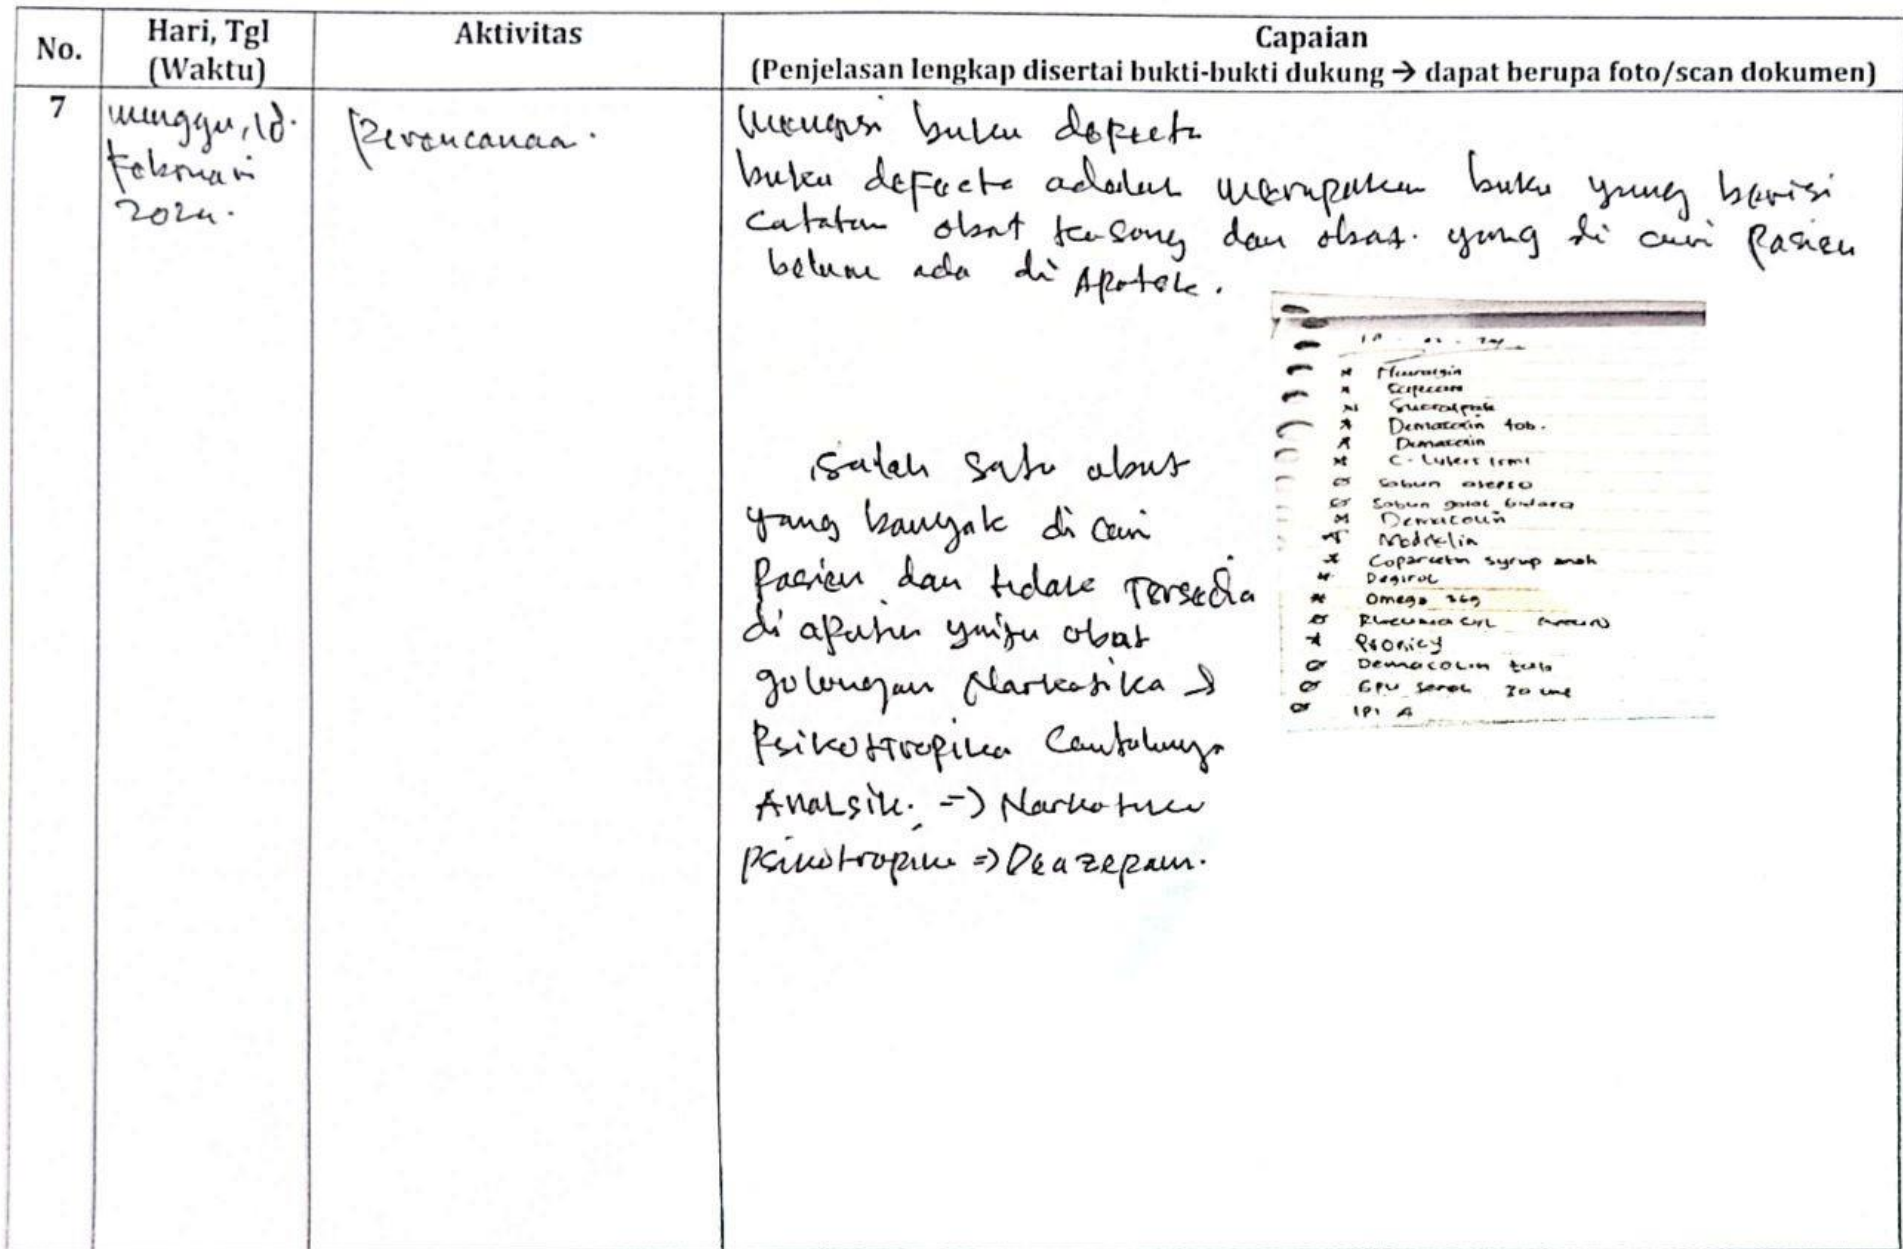 No.
Hari, Tgl
(Waktu)
Aktivitas
Capaian
(Penjelasan lengkap disertai bukti-bukti dukung → dapat berupa foto/scan dokumen)
7
Minggu, 18.
Februari
2024.
Perencanaan.
Mengisi buku defecta
buku defecta adalah merupakan buku yang berisi
catatan obat kosong dan obat. yang di cari Pasien
belum ada di Apotek.
salah satu obat
yang banyak di cari
Pasien dan tidak Tersedia
di apotek yaitu obat
golongan Narkotika &
Psikotropika Contohnya
Analsik. => Narkotika
psikotropika => Deazepam.
* Neuralgin
* Scopecom
* Sucralfate
* Demacolin tab.
* Demacolin
* C-Lutens
Sabun asepso
Sabun bidara
* Demacolin
Coparcetin syrup anak
* Degirol
* Omega 369
Rheumacyl
Demacolin tab
GPU sereh 30 ml
IPI A